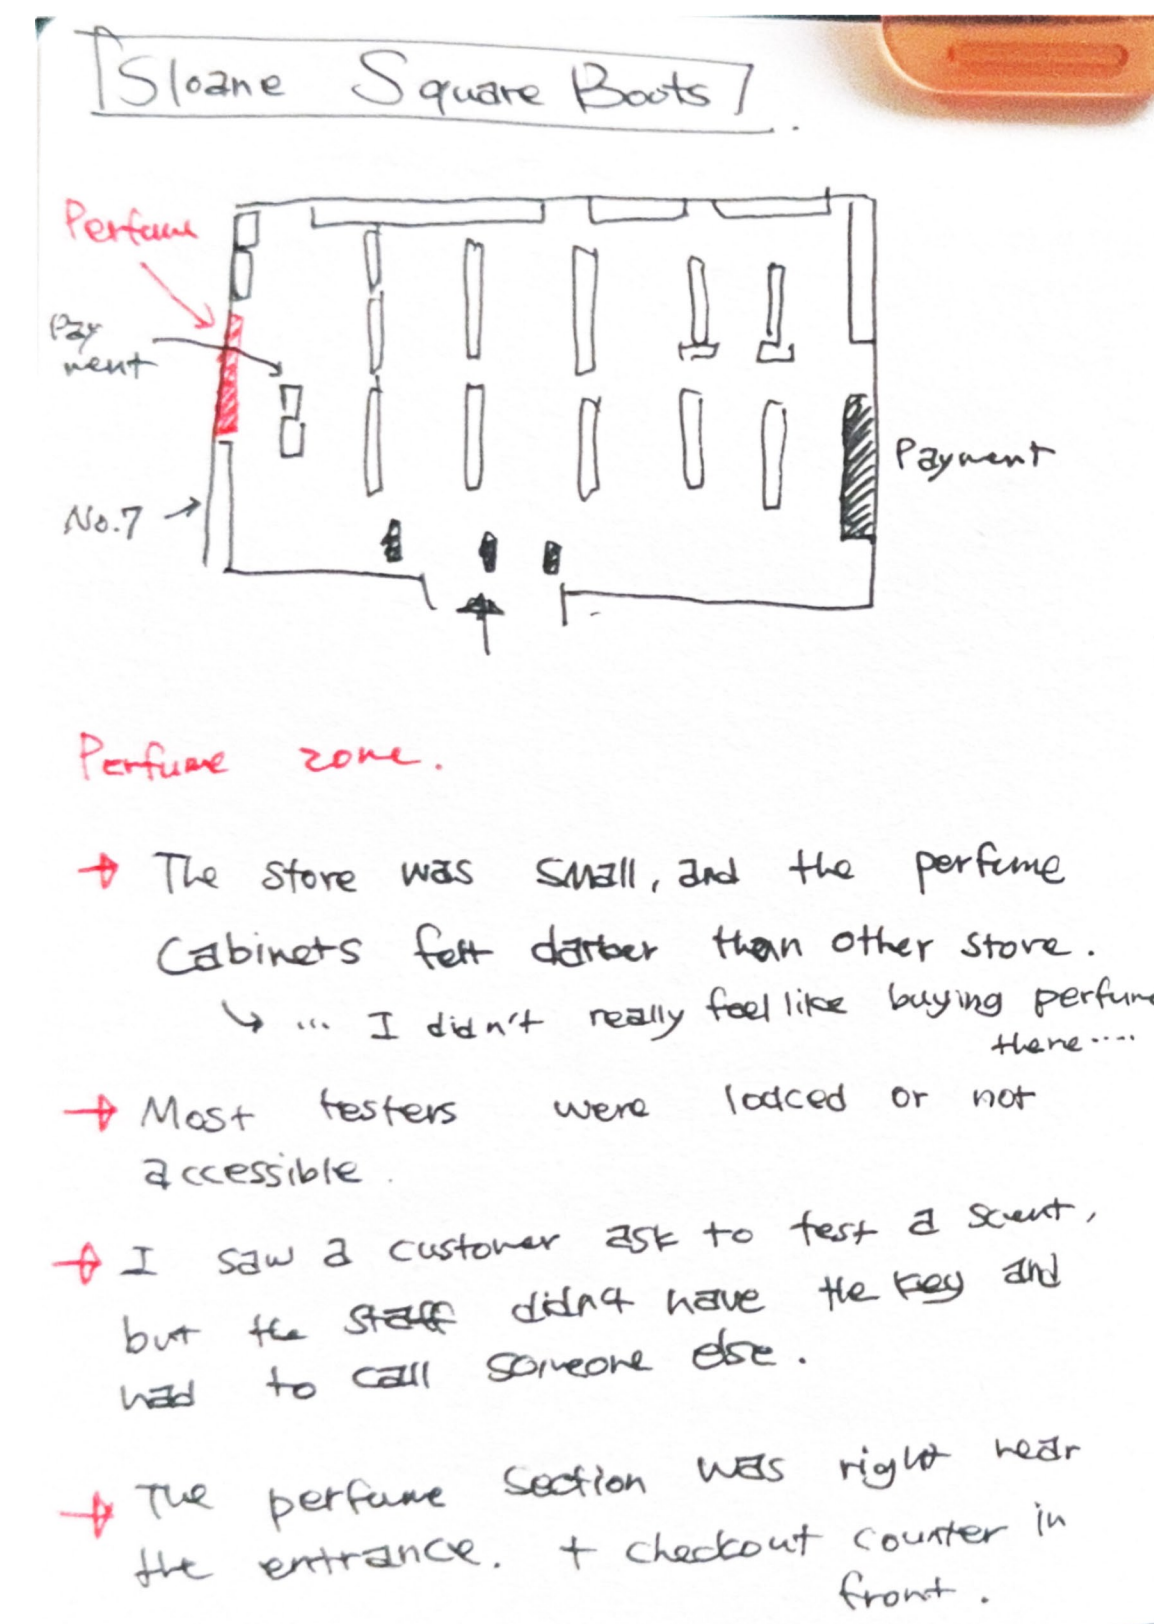 Sloane Square Boots
Perfume
Pay
ment
No.7
Payment
Perfume zone.
The store was small, and the perfume
Cabinets felt darker than other store.
... I didn't really feel like buying perfume
there....
Most testers were locked or not
accessible.
I saw a customer ask to test a scent,
but the staff didn't have the key and
had to call someone else.
The perfume section was right near
the entrance. + checkout counter in
front.